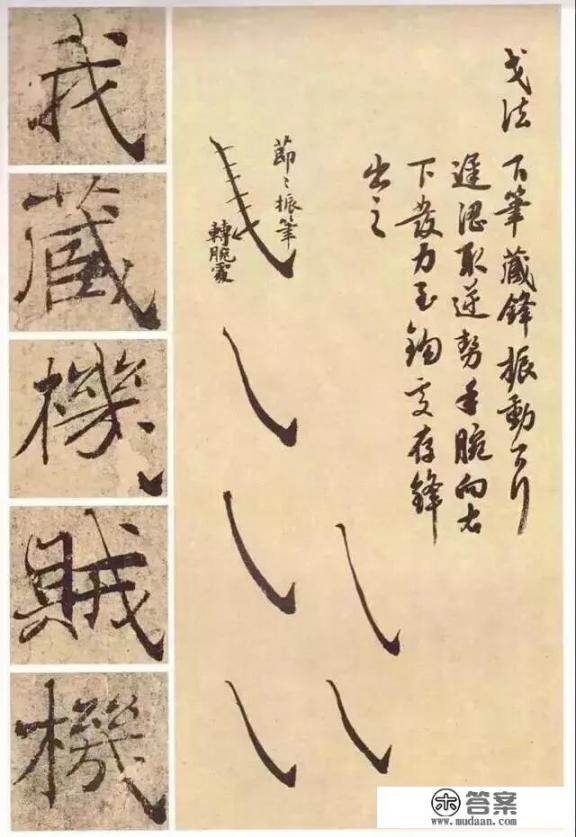 戈法 下筆藏鋒振動而行
遲澀取逆勢手腕向右
下發力至鉤處存鋒
出之
節々振筆
轉腕處
我
藏
機
賊
機
答案
www.mudaan.com